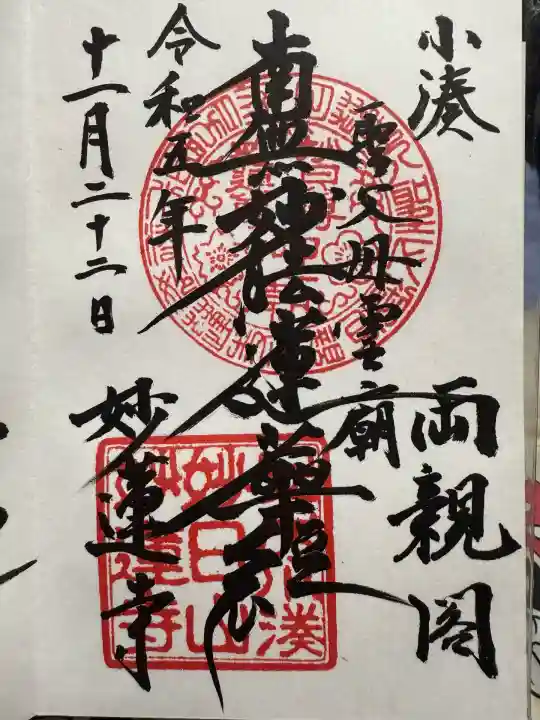 小湊
両親閣
聖父母霊廟
南無妙法蓮華経
令和五年
十一月二十二日
妙蓮寺
小湊
妙日山
妙蓮寺